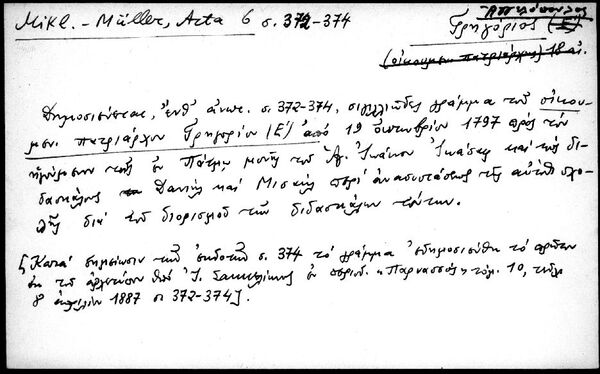 Mikl. - Müller, Acta 6 σ. 372-374
Γρηγόριος (Ε)
(οἰκουμεν. πατριάρχης) 18 αἰ.
Δημοσιεύεται, ἔνθ' ἀνωτ. σ. 372-374, σιγιλλιῶδες γράμμα τοῦ οἰκου-
μεν. πατριάρχου Γρηγορίου (Ε') ἀπό 19 ὀκτωβρίου 1797 πρός τόν
ἡγούμενον τῆς ἐν Πάτμῳ μονῆς τοῦ Ἁγ. Ἰωάννου καί τούς δι-
δασκάλους Δανιήλ καί Μισαήλ περί ἀνασυστάσεως τῆς αὐτόθι σχο-
λῆς διά τοῦ διορισμοῦ τῶν διδασκάλων τούτων.
[Κατά σημείωσιν τῶν ἐκδοτῶν σ. 374 τό γράμμα ἐδημοσιεύθη τό πρῶτον
ἐκ τοῦ ἀρχετύπου ὑπό Ἰ. Σακκελίωνος ἐν περιοδ. «Παρνασσός» τόμ. 10, τεῦχ.
8 ἀπριλίου 1887 σ. 372-374].